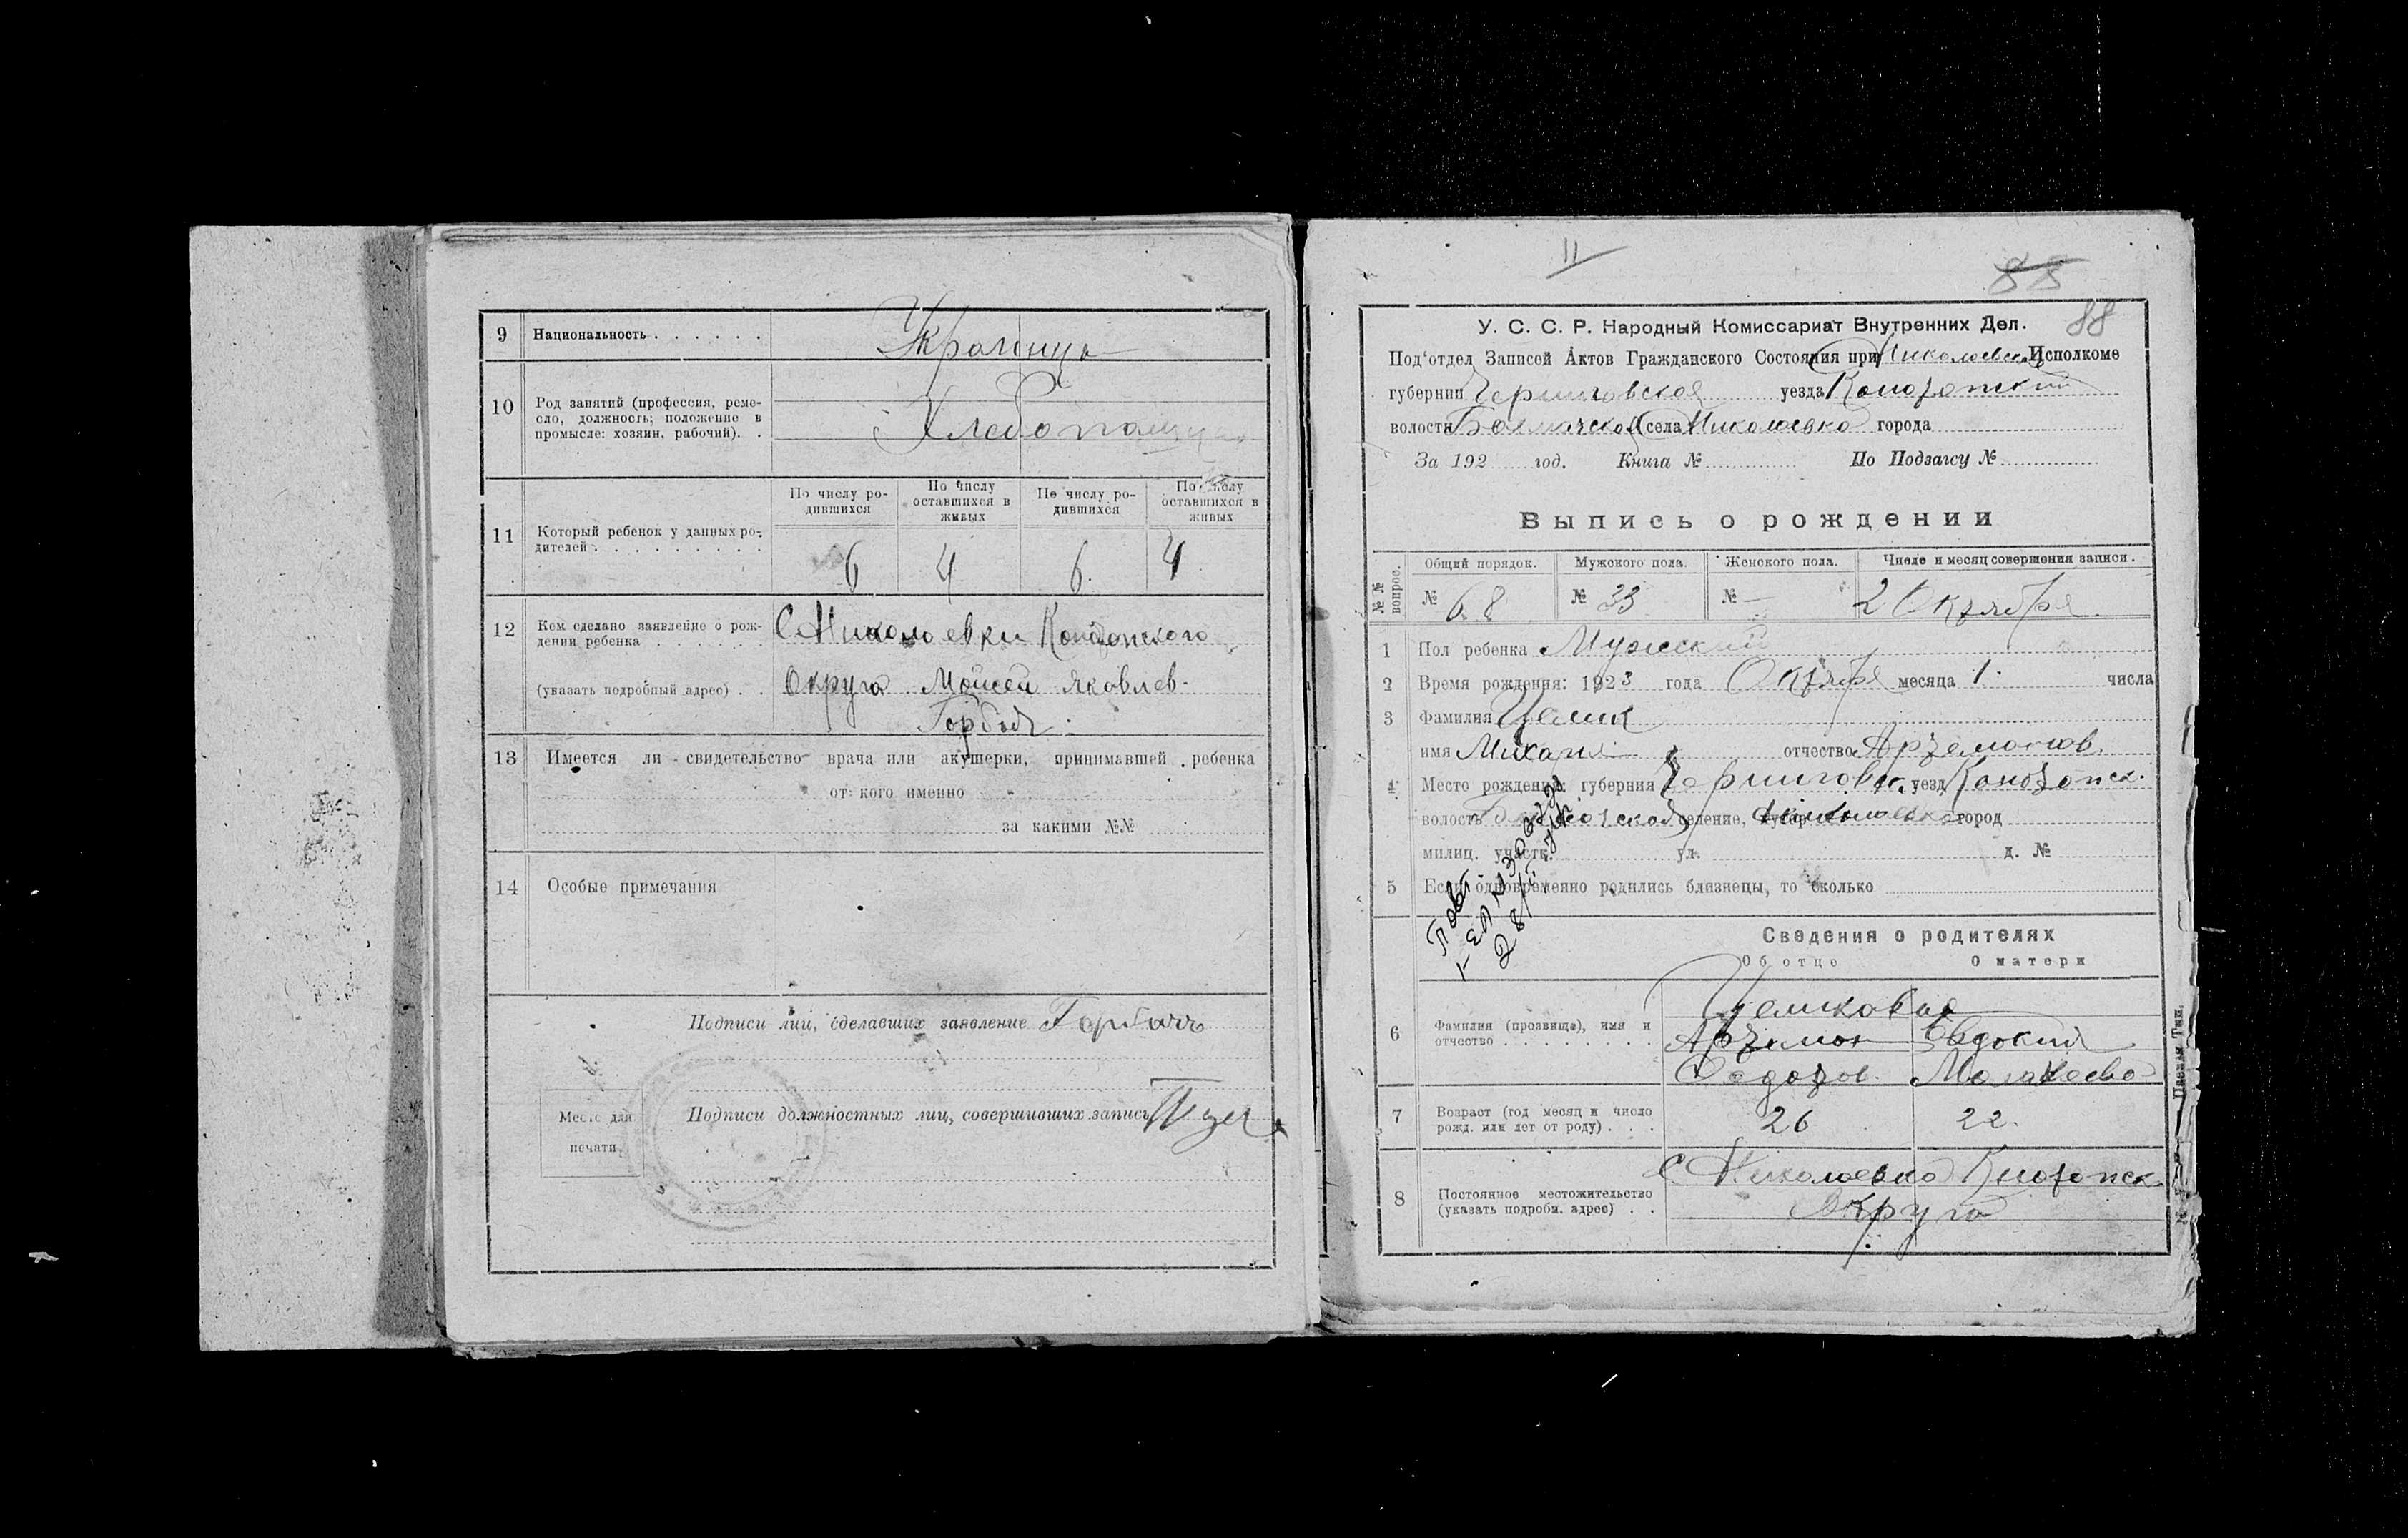 9 Национальность . . . . . . Украинцы
10 Род занятий (профессия, реме-
сло, должность; положение в
промысле: хозяин, рабочий). .
Хлебопашцы
По числу ро-
дившихся
По числу
оставшихся в
живых
По числу ро-
дившихся
По числу
оставшихся в
живых
11 Который ребенок у данных ро-
дителей . . . . . . . . .
6 4 6. 4
12 Кем сделано заявление о рож-
дении ребенка . . . . . .
С Николаевки Конотопского
(указать подробный адрес) . .
Округа Мойсей Яковлев.
Горбач.
13 Имеется ли свидетельство врача или акушерки, принимавшей ребенка
от кого именно
за какими №№
14 Особые примечания
Подписи лиц, сделавших заявление Горбачъ
Место для
печати.
Подписи должностных лиц, совершивших запись
11
88
88
У. С. С. Р. Народный Комиссариат Внутренних Дел.
Под'отдел Записей Актов Гражданского Состояния при Николаевск Исполкоме
губернии Черниговская уезда Конотопский
волости Бахмачской села Николаевка города
За 192 год. Книга № По Подзагсу №
Выпись о рождении
№№ вопрос.
Общий порядок. Мужского пола. Женского пола. Число и месяц совершения записи.
№ 68 № 33 № — 2 Октября.
1 Пол ребенка Мужский
2 Время рождения: 1923 года Октября месяца 1. числа
3 Фамилия Цемик
имя Михаил отчество Артемонов.
4 Место рождения: губерния Черниговск. уезд Конотопск.
волость Бахмачская селение, хутор Николаевка город
милиц. участк. ул. д. №
5 Если одновременно родились близнецы, то сколько
Сведения о родителях
Об отце О матери
6 Фамилия (прозвище), имя и
отчество . . . . . . . .
Цемковы
Артемон Евдокия
Федотов. Малахеева
7 Возраст (год месяц и число
рожд. или лет от роду) . . .
26 22.
8 Постоянное местожительство
(указать подробн. адрес) . .
С Николаевка Кнотопск.
Округа